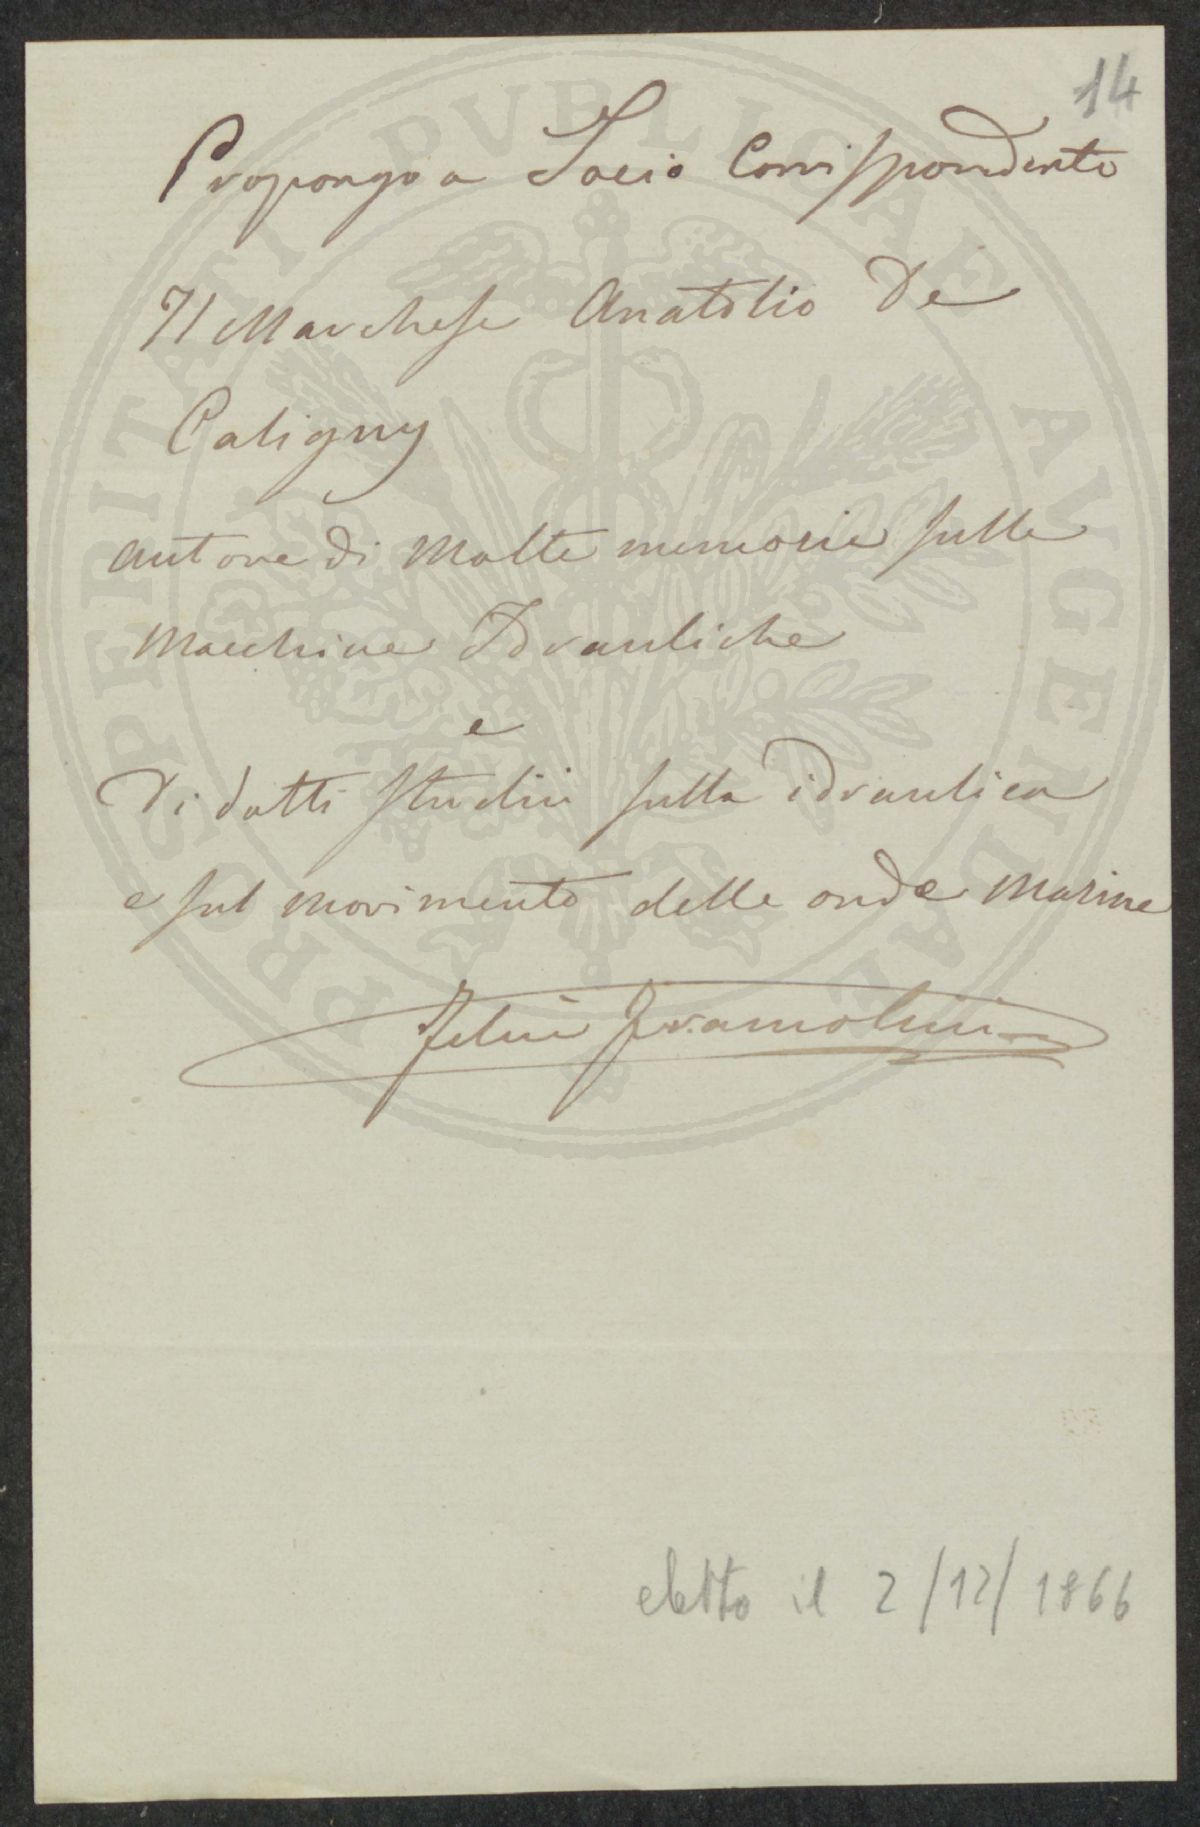 14
Propongo a Socio Corrispondente
Il Marchese Anatolio De
Caligny
autore di Molte memorie sulle
Macchine Idrauliche
e
di dotti studii sulla idraulica
e sul movimento delle onde Marine
eletto il 2/12/1866
PROSPERITATI PVBLICAE AVGENDAE